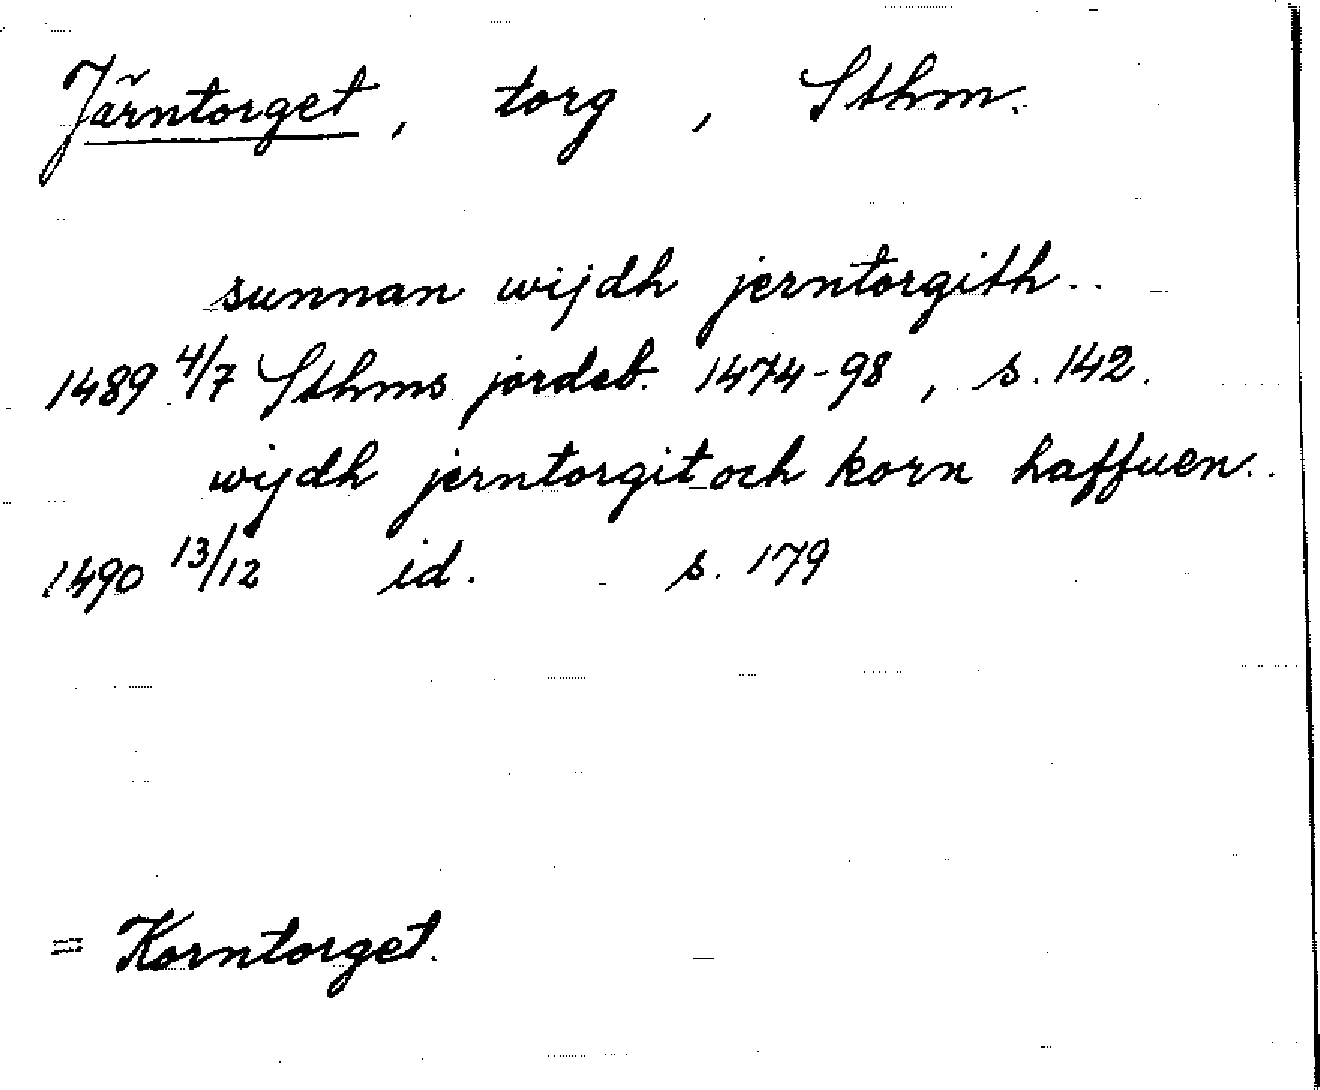 Järntorget, torg, Sthm.
sunnan wijdh jerntorgith..
1489 4/7 Sthms jordeb. 1474-98, s. 142.
wijdh jerntorgit och korn haffuen..
1490 13/12 id. s. 179
= Korntorget.